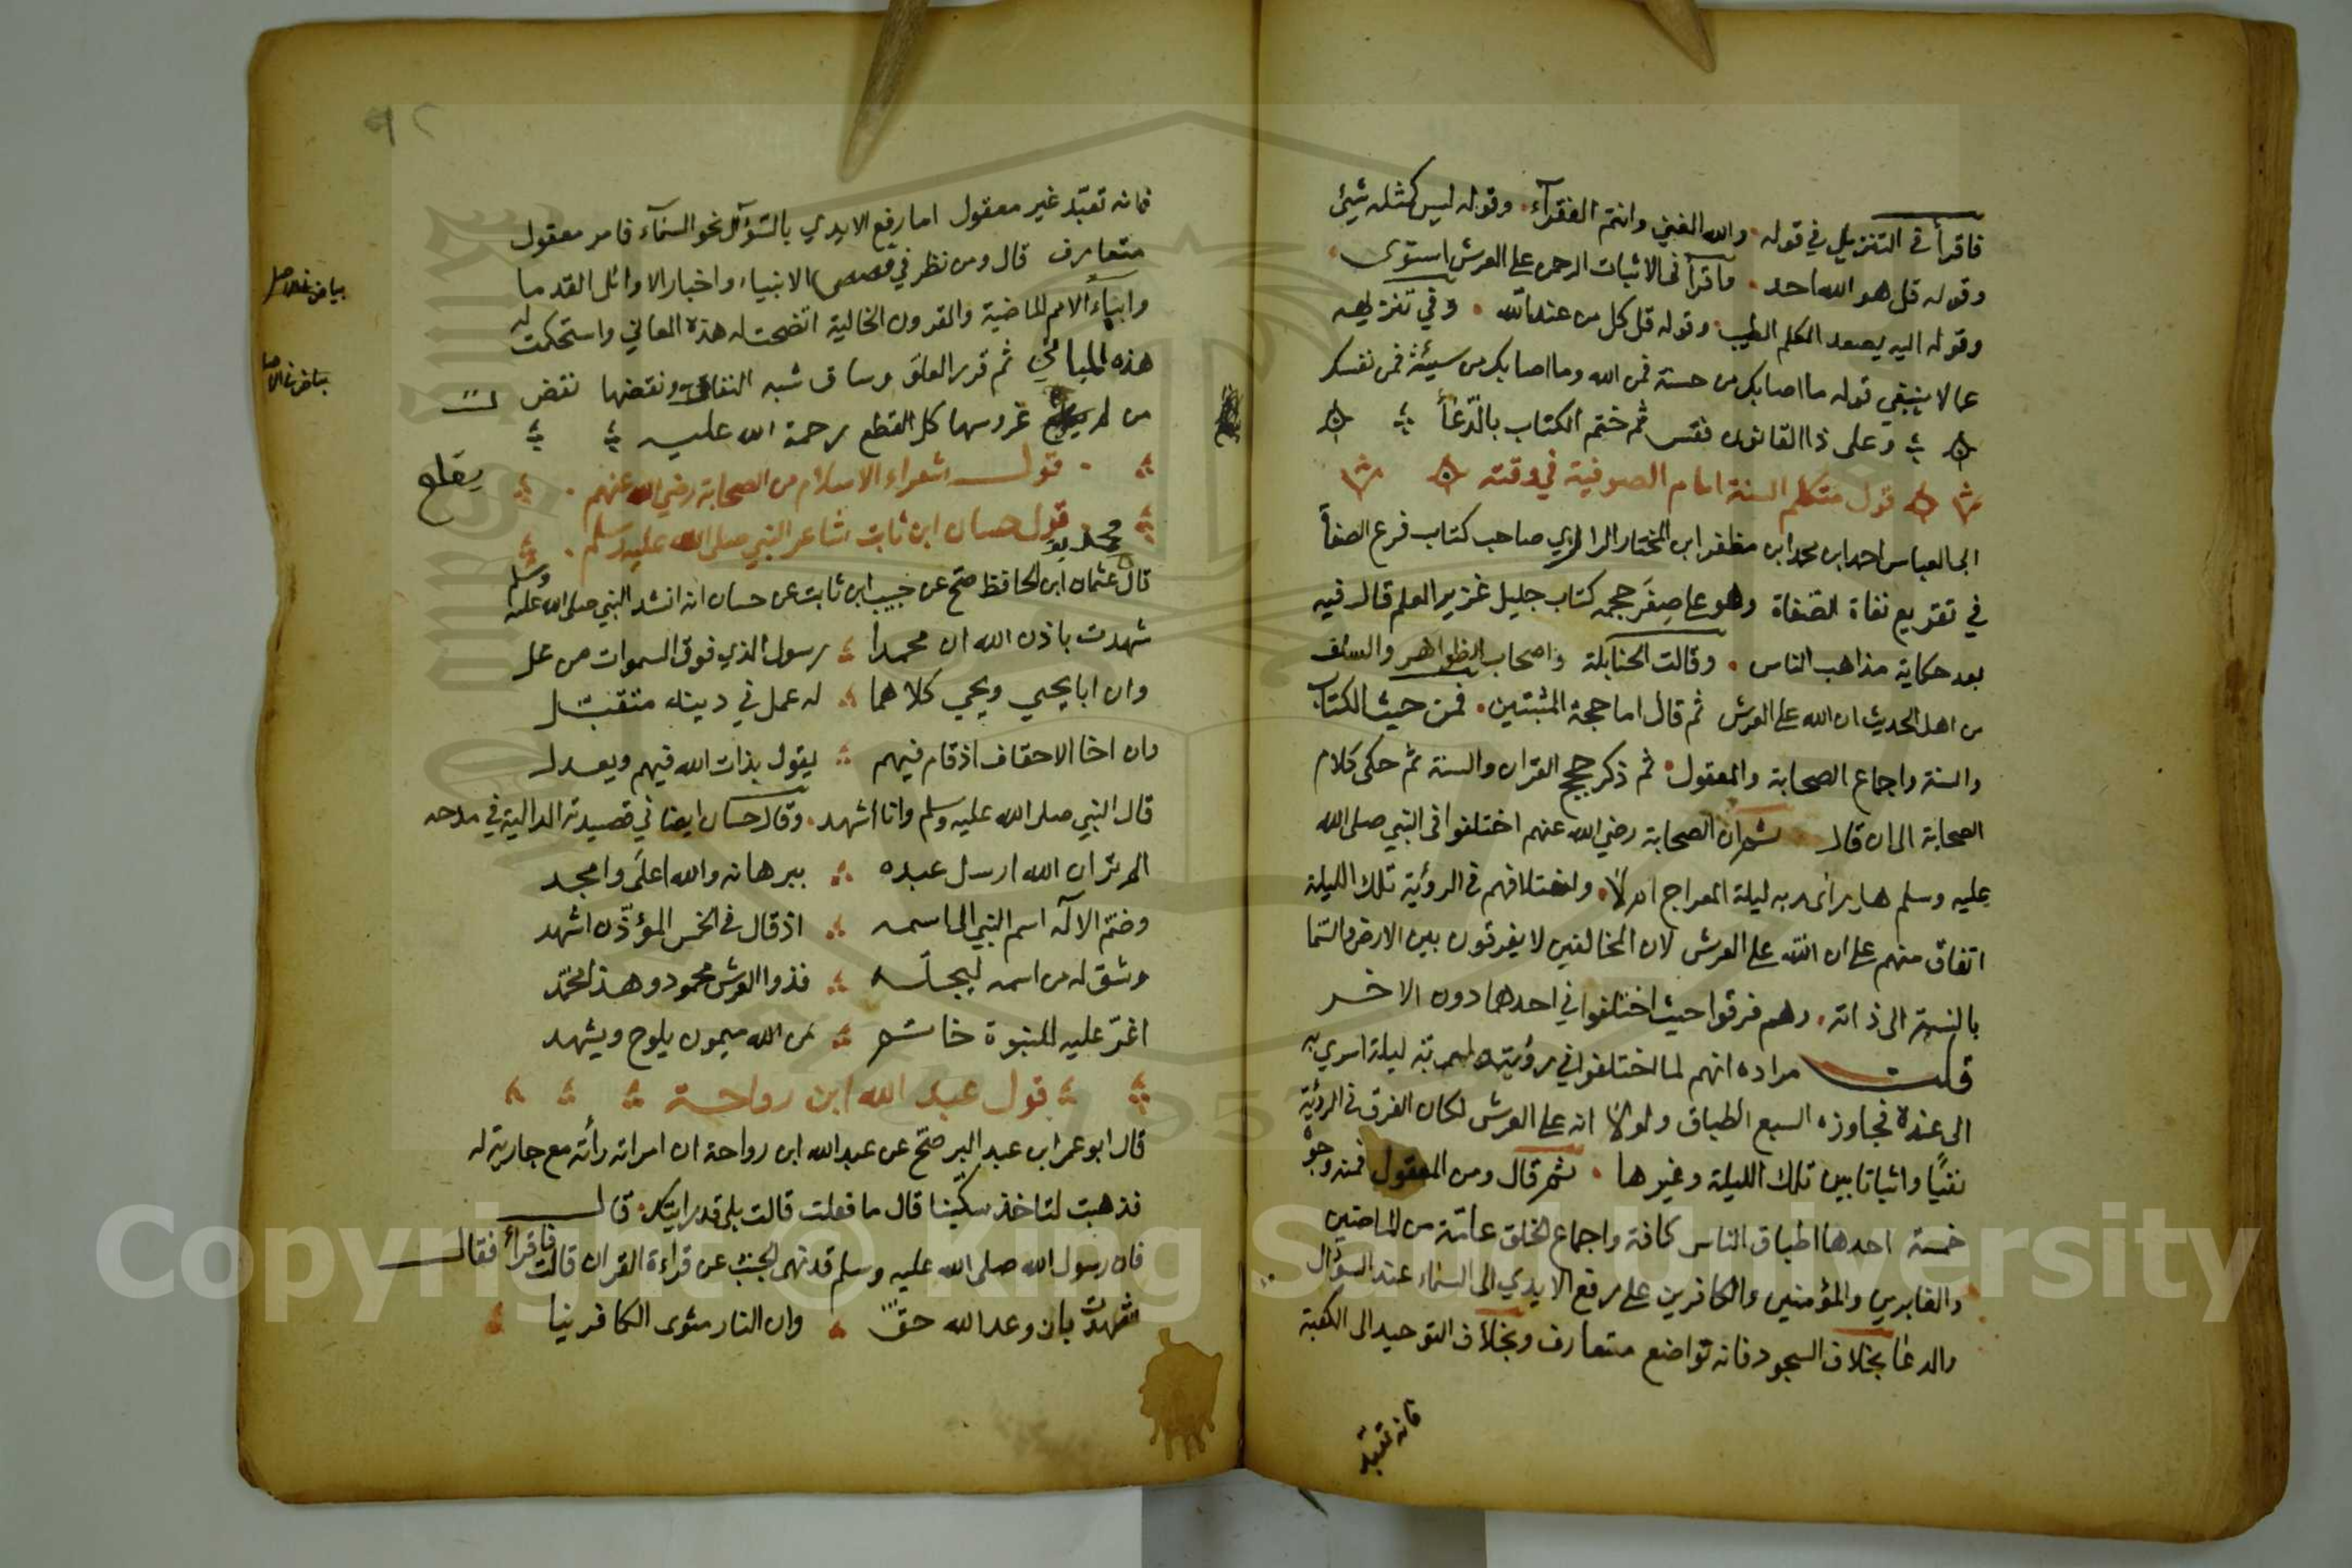 فاقرأ في التنزيل في قوله والله الغني وانتم الفقرآء وقوله ليس كمثله شيئ
وقوله قل هو الله احد واقرأ في الاثبات الرحمن على العرش استوى
وقوله اليه يصعد الكلم الطيب وقوله قل كل من عند الله وفي تنزيهه
عما لا ينبغي قوله ما اصابك من حسنة فمن الله وما اصابك من سيئة فمن نفسك
وعلى ذا القانون فقس ثم ختم الكتاب بالدّعأ
قول متكلم السنة امام الصوفية في وقته
ابي العباس احمد ابن محمد ابن مظفر ابن المختار الرازي صاحب كتاب فرع الصفأ
في تقريع نفاة الصّفاة وهو على صِغَر حجمه كتاب جليل غزير العلم قال فيه
بعد حكاية مذاهب الناس وقالت الحنابلة واصحاب الظواهر والسلف
من اهل الحديث ان الله على العرش ثم قال اما حجة المثبتين فمن حيث الكتاب
والسنة واجماع الصحابة والمعقول ثم ذكر حجج القران والسنة ثم حكى كلام
الصحابة الى ان قال ثم ان الصحابة رضي الله عنهم اختلفوا في النبي صلى الله
عليه وسلم هل رأى ربه ليلة المعراج ام لا واختلافهم في الرؤية تلك الليلة
اتفاق منهم على ان الله على العرش لان المخالفين لا يفرقون بين الارض والسّما
بالنسبة الى ذاته وهم فرقوا حيث اختلفوا في احدهما دون الاخر
قلت مراده انهم لما اختلفوا في رؤيته لربه ليلة اسري به
الى عنده فجاوزه السبع الطباق ولولا انه على العرش لكان الفرق في الرؤية
نفيًا واثباتا بين تلك الليلة وغيرها ثم قال ومن المعقول فمنه وجوه
خمسة احدها اطباق الناس كافة واجماع الخلق عامّة من الماضين
والغابرين والمؤمنين والكافرين على رفع الايدي الى السّماء عند السؤال
والدعا بخلاف السجود فانه تواضع متعارف وبخلاف التوحيد الى الكعبة
فانه تعبّد
فانه تعبّد غير معقول اما رفع الايدي بالسّؤال نحو السّمآء فامر معقول
متعارف قال ومن نظر في قصص الانبياء واخبار الاوائل القدما
وانباء الامم الماضية والقرون الخالية اتضحت له هذه المعاني واستحكمت له
هذه المباني ثم قرر العلوّ وساق شبه النفاة ونقضها نقض
من لم غروسها كل القطع رحمة الله عليه
يقلع
بياض في الاصل
بياض في الاصل
قول شعراء الاسلام من الصحابة رضي الله عنهم
قول حسان ابن ثابت شاعر النبي صلى الله عليه وسلم
قال عثمان ابن الحافظ صح عن حبيب ابن ثابت عن حسان انه انشد النبي صلى الله عليه وسلم
شهدت باذن الله ان محمداً رسول الذي فوق السموات من عل
وان ابا يحيي ويحيي كلاهما له عمل في دينه متقبّل
وان اخا الاحقاف اذ قام فيهم يقول بذات الله فيهم ويعدل
قال النبي صلى الله عليه وسلم وانا أشهد وقال حسان ايضا في قصيدته الدالية في مدحه
الم تر ان الله ارسل عبده ببرهانه والله اعلَى وامجد
وضم الالٓه اسم النبي الى اسمه اذ قال في الخمس المؤذّن اشهد
وشق له من اسمه ليجلّه فذوا العرش محمود وهذا محمّد
اغرّ عليه للنبوة خاتم من الله ميمون يلوح ويشهد
قول عبد الله ابن رواحة
قال ابو عمر ابن عبد البر صحّ عن عبد الله ابن رواحة ان امراته رأته مع جارية له
فذهبت لتاخذ سكّينا قال ما فعلت قالت بلى قد رايتك قال
فان رسول الله صلى الله عليه وسلم قد نهى الجنب عن قراءة القران قالت فاقرأ فقال
شهدت بان وعد الله حقّ وان النار مثوى الكافرينا
Copyright © King Saud University